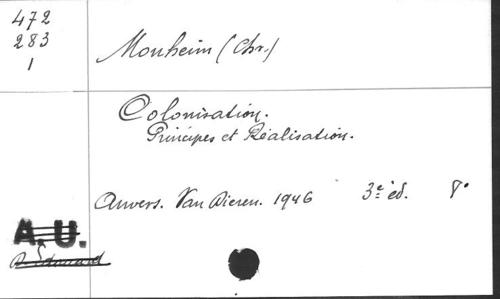 472
283
1
Monheim (Chr.)
Colonisation.
Principes et Réalisation.
Anvers. Van Dieren. 1946 3e éd. 8°
A. U.